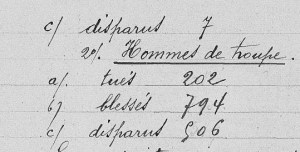 c/ disparus 7
2o/. Hommes de troupe.
a/. tués 202
b/ blessés 794
c/ disparus 506